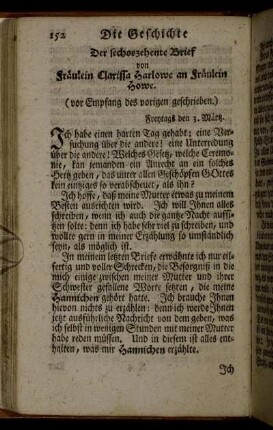 152 Die Geschichte
Der sechszehente Brief
von
Fräulein Clarissa Harlowe an Fräulein
Howe.
(vor Empfang des vorigen geschrieben.)
Freytags den 3. März.
Ich habe einen harten Tag gehabt; eine Ver-
suchung über die andere! eine Unterredung
über die andere! Welches Gesetz, welche Ceremo-
nie, kan jemanden ein Unrecht an ein solches
Hertz geben, das unter allen Geschöpfen GOttes
kein eintziges so verabscheuet, als ihn?
Ich hoffe, daß meine Mutter etwas zu meinem
Besten ausrichten wird. Ich will Ihnen alles
schreiben, wenn ich auch die gantze Nacht aufsi-
tzen solte: denn ich habe sehr viel zu schreiben, und
wollte gern in meiner Erzählung so umständlich
seyn, als möglich ist.
In meinem letzten Briefe erwähnte ich nur eil-
fertig und voller Schrecken, die Besorgniß in die
mich einige zwischen meiner Mutter und ihrer
Schwester gefallene Worte setzten, die meine
Hannichen gehört hatte. Ich brauche Ihnen
hievon nichts zu erzählen: denn ich werde Ihnen
jetzt ausführliche Nachricht von dem geben, was
ich selbst in wenigen Stunden mit meiner Mutter
habe reden müssen. Und in diesem ist alles ent-
halten, was mir Hannichen erzählte.
Ich